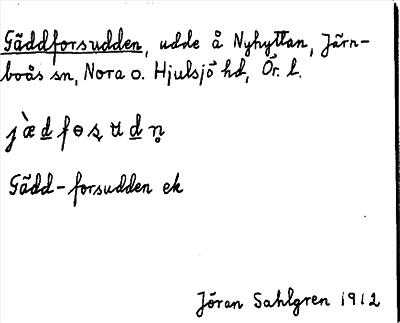 Gäddforsudden, udde å Nyhyttan, Järn-
boås sn, Nora o. Hjulsjö hd, Ör. l.
j̀æd̲fɵʂʉd̲n̥
Gädd-forsudden ek
Jöran Sahlgren 1912